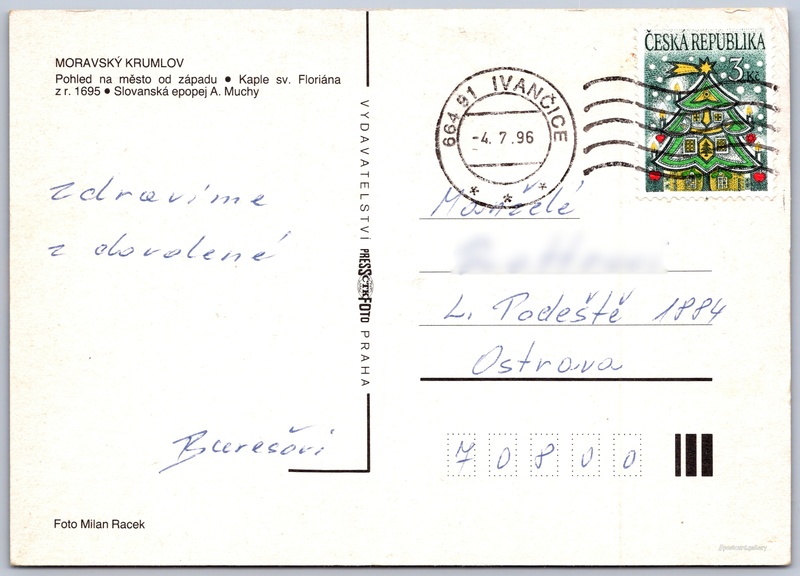 MORAVSKÝ KRUMLOV
Pohled na město od západu ● Kaple sv. Floriána
z r. 1695 ● Slovanská epopej A. Muchy
zdravíme
z dovolené
Burešovi
Foto Milan Racek
VYDAVATELSTVÍ PRESSFOTO PRAHA
ČTK
664 91 IVANČICE
-4.7.96
* * *
ČESKÁ REPUBLIKA
3 Kč
Manželé
L. Podéště 1884
Ostrava
70800